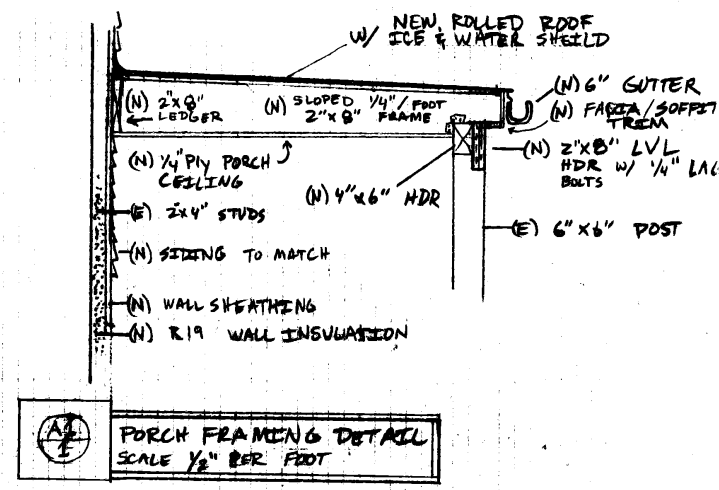 NEW, ROLLED ROOF
W/ ICE & WATER SHEILD
(N) 6" GUTTER
(N) FACIA/SOFFIT
TRIM
(N) 2"X8"
LEDGER
(N) SLOPED 1/4"/FOOT
2"X8" FRAME
(N) 2"X8" LVL
HDR W/ 1/4" LAG
BOLTS
(N) 1/4" PLY PORCH
CEILING
(N) 4"X6" HDR
(E) 2"X4" STUDS
(E) 6"X6" POST
(N) SIDING TO MATCH
(N) WALL SHEATHING
(N) R19 WALL INSULATION
PORCH FRAMING DETAIL
SCALE 1/2" PER FOOT